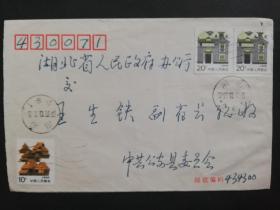 430071
湖北省人民政府办公厅
交
王生铁副省长收
中共公安县委员会
邮政编码 434300
20分
中国人民邮政
20分
中国人民邮政
10分
中国人民邮政